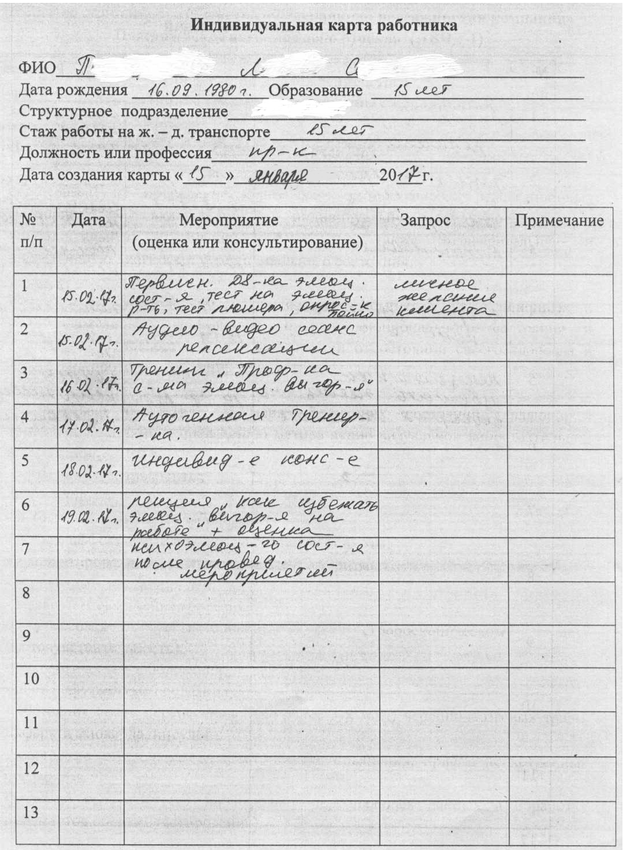 Индивидуальная карта работника
ФИО П Л С
Дата рождения 16.09.1980г. Образование 15 лет
Структурное подразделение
Стаж работы на ж. – д. транспорте 15 лет
Должность или профессия пр-к
Дата создания карты «15» января 2017 г.
№ п/п Дата Мероприятие (оценка или консультирование) Запрос Примечание
1 15.02.17г. Первичн. DS-ка эмоц. личное
сост-я, тест на эмоц. желания
р-ть, тест Люшера, опрос-к клиента
2 15.02.17г. Аудио-видео сеанс
релаксации
3 16.02.17г. Тренинг „Проф-ка
с-ма эмоц. выгор-я“
4 17.02.17г. Аутогенная тренир-
-ка.
5 18.02.17г. индивид-е конс-е
6 19.02.17г. лекция „как избежать
эмоц. выгор-я на
работе“ + оценка
7 психоэмоц-го сост-я
после провед.
мероприятий
8
9
10
11
12
13